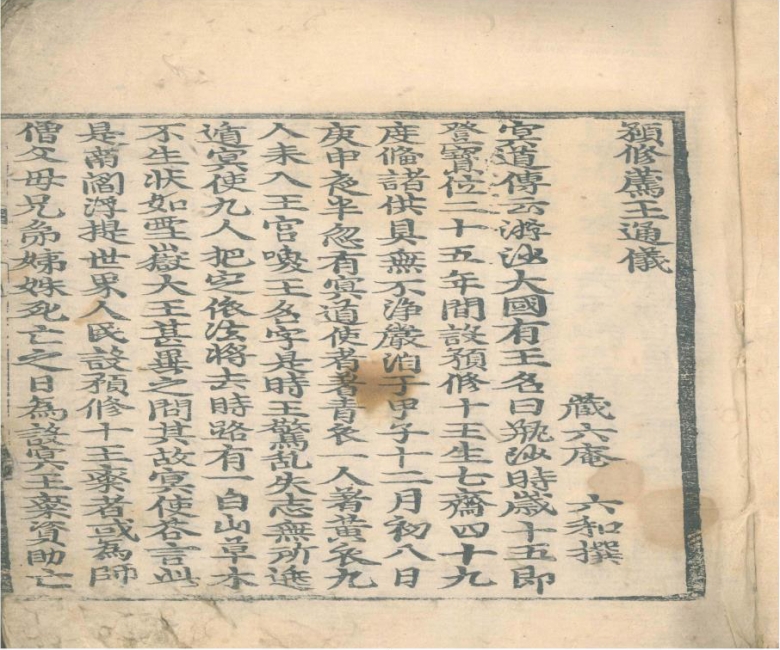 預修薦王通儀
藏六庵 六和撰
冥道傳云游沙大國有王名曰甁沙時歲十五即
登寶位二十五年間設預修十王生七齋四十九
度俻諸供具無不淨嚴洎于甲子十二月初八日
庚申夜半忽有冥道使者著青衣一人著黃衣九
人来入王宮喚王名字是時王驚乱失志無所逃
遁冥使九人把定依法將去時路有一白山草木
不生狀如嶽大王甚異之問其故冥使荅言此
是南閻浮提世界人民設預修十王齋者或爲師
僧父母兄弟姊妹死亡之日爲設冥王齋資助亡